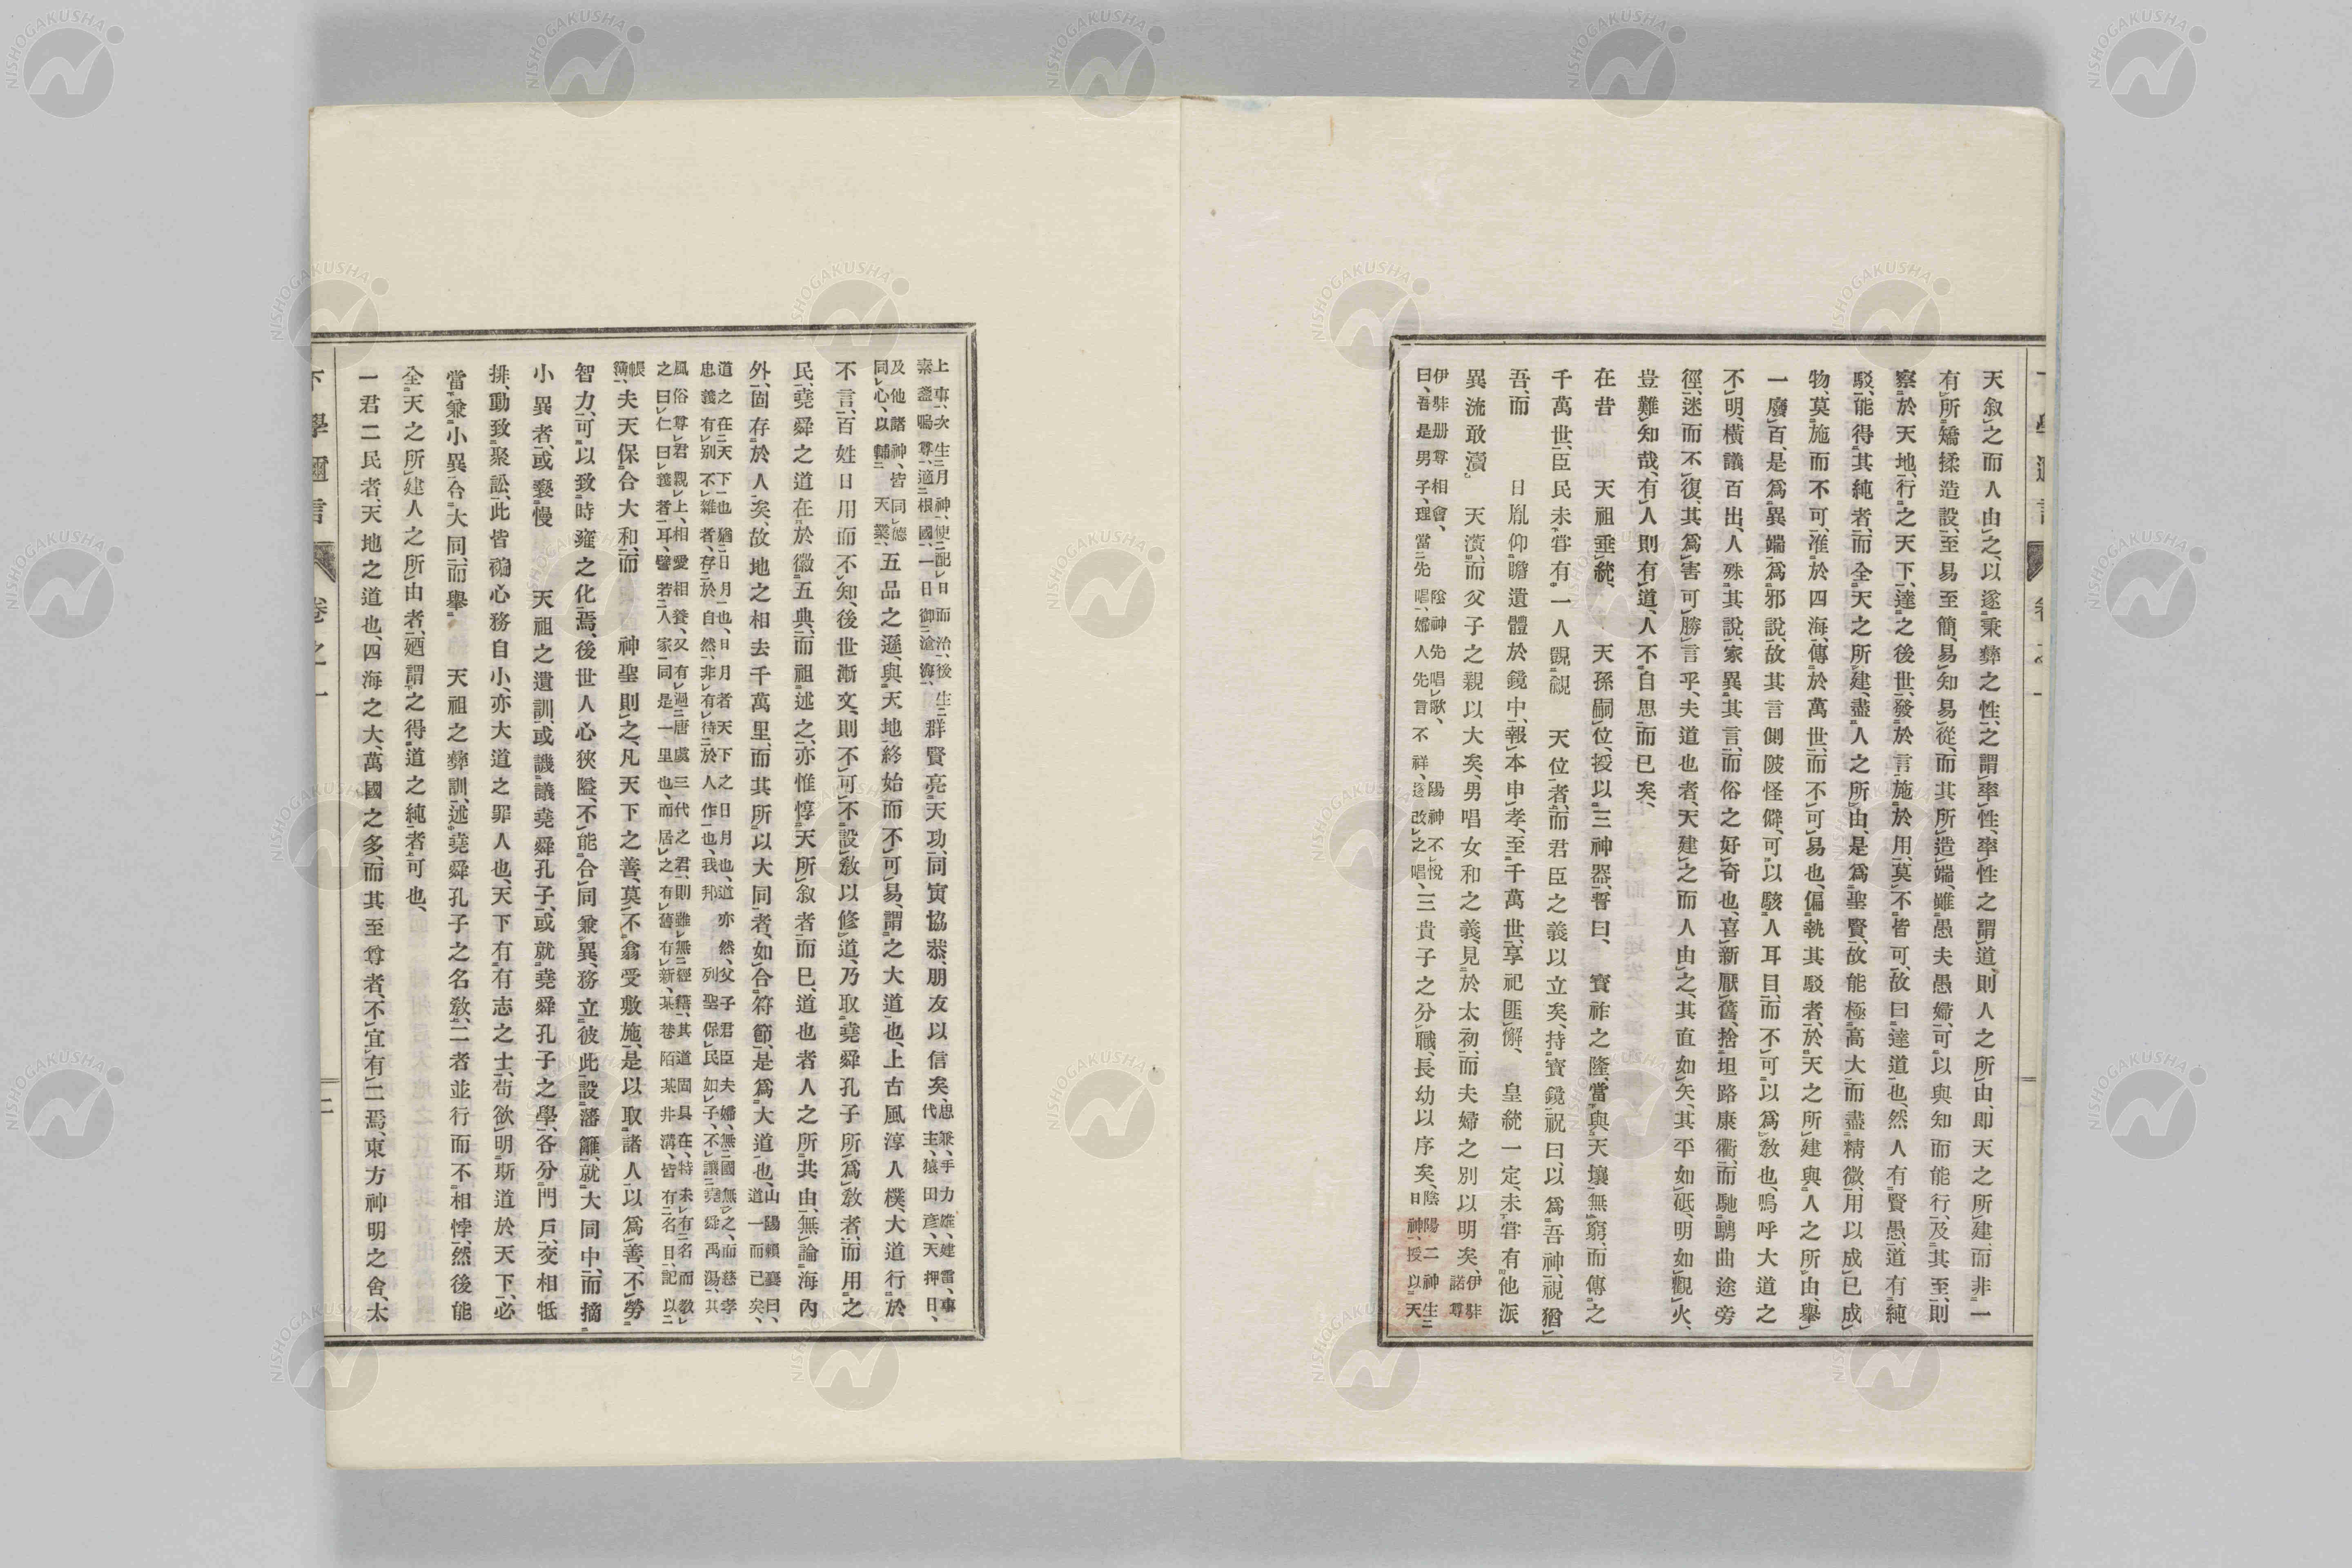 天叙之而人由之、以遂秉彝之性、之謂率性、率性之謂道、則人之所由、即天之所建、而非一
有所矯揉造設、至易至簡、易知易從、而其所造端、雖愚夫愚婦、可以與知而能行、及其至、則
察於天地、行之天下、達之後世、發於言、施於用、莫不皆可、故曰達道也、然人有賢愚、道有純
駁、能得其純者、而全天之所建、盡人之所由、是爲聖賢、故能極高大而盡精微、用以成己成
物、莫施而不可、准於四海、傳於萬世、而不可易也、偏執其駁者、於天之所建與人之所由、擧
一廢百、是爲異端、爲邪說、故其言側陂怪僻、可以駭人耳目、而不可以爲敎也、嗚呼大道之
不明、橫議百出、人殊其說、家異其言、而俗之好奇也、喜新厭舊、捨坦路康衢、而馳騁曲途旁
徑、迷而不復、其爲害可勝言乎、夫道也者、天建之而人由之、其直如矢、其平如砥、明如觀火、
豈難知哉、有人則有道、人不自思而已矣、
在昔　天祖垂統、　天孫嗣位、授以三神器、誓曰、　寳祚之隆、當與天壤無窮、而傳之
千萬世、臣民未甞有一人覬覦　天位者、而君臣之義以立矣、持寳鏡祝曰、以爲吾神、視猶
吾、而　日胤仰瞻遺體於鏡中、報本申孝、至千萬世、享祀匪懈、　皇統一定、未甞有他派
異流敢瀆　天潢、而父子之親以大矣、男唱女和之義、見於太初、而夫婦之別以明矣、伊弉諾尊
伊弉册尊相會、陰神先唱歌、陽神不悅
曰、吾是男子、理當先唱、婦人先言不祥、遂改之唱、三貴子之分職、長幼以序矣、陰陽二神生日神、授以天
上事、次生月神、使配日而治、後生
素盞嗚尊、適根國、一日御滄海、群賢亮天功、同寅協恭、朋友以信矣、思兼、手力雄、建雷、事代主、猿田彥、天押日、
及他諸神、皆同德
同心、以輔天業、五品之遜、與天地終始而不可易、謂之大道也、上古風淳人樸、大道行於
不言、百姓日用而不知、後世漸文、則不可不設敎以修道、乃取堯舜孔子所爲敎者、而用之
民、堯舜之道在於徽五典、而祖述之、亦惟惇天所叙者而已、道也者人之所共由、無論海內
外、固存於人矣、故地之相去千萬里、而其所以大同者、如合符節、是爲大道也、山陽賴襄曰、道一而已矣、
道之在天下也、猶日月也、日月者天下之日月也、道亦然、父子君臣夫婦、無國無之、而慈孝
忠義有別不雜者、存於自然、非有待於人作也、我邦列聖保民如子、不讓堯舜禹湯、其
風俗尊君親上、相愛相養、又有過唐虞三代之君、則雖無經籍、其道固具在、特未有名而敎
之曰仁曰義者耳、譬若人家同是一里也、而居之有舊有新、某巷陌某井溝、皆有名目、記以
帳
簿、夫天保合大和、而　神聖則之、凡天下之善、莫不翕受敷施、是以取諸人以爲善、不勞
智力、可以致時雍之化焉、後世人心狹隘、不能合同兼異、務立彼此、設藩籬、就大同中、而摘
小異者、或褻慢　天祖之遺訓、或譏議堯舜孔子、或就堯舜孔子之學、各分門戶、交相牴
排、動致聚訟、此皆褊心務自小、亦大道之罪人也、天下有有志之士、苟欲明斯道於天下、必
當兼小異合大同、而擧　天祖之彝訓、述堯舜孔子之名敎、二者並行而不相悖、然後能
全天之所建人之所由者、廼謂之得道之純者可也、
一君二民者、天地之道也、四海之大、萬國之多、而其至尊者、不宜有二焉、東方神明之舍、太
下學邇言　卷之一　二